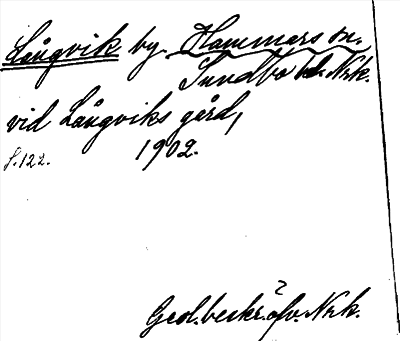 Långvik by. Hammars sn.
Sundbo hd. Nrk.
vid Långviks gård,
s. 122. 1902.
Geol. beskr. öfv. Nrk.